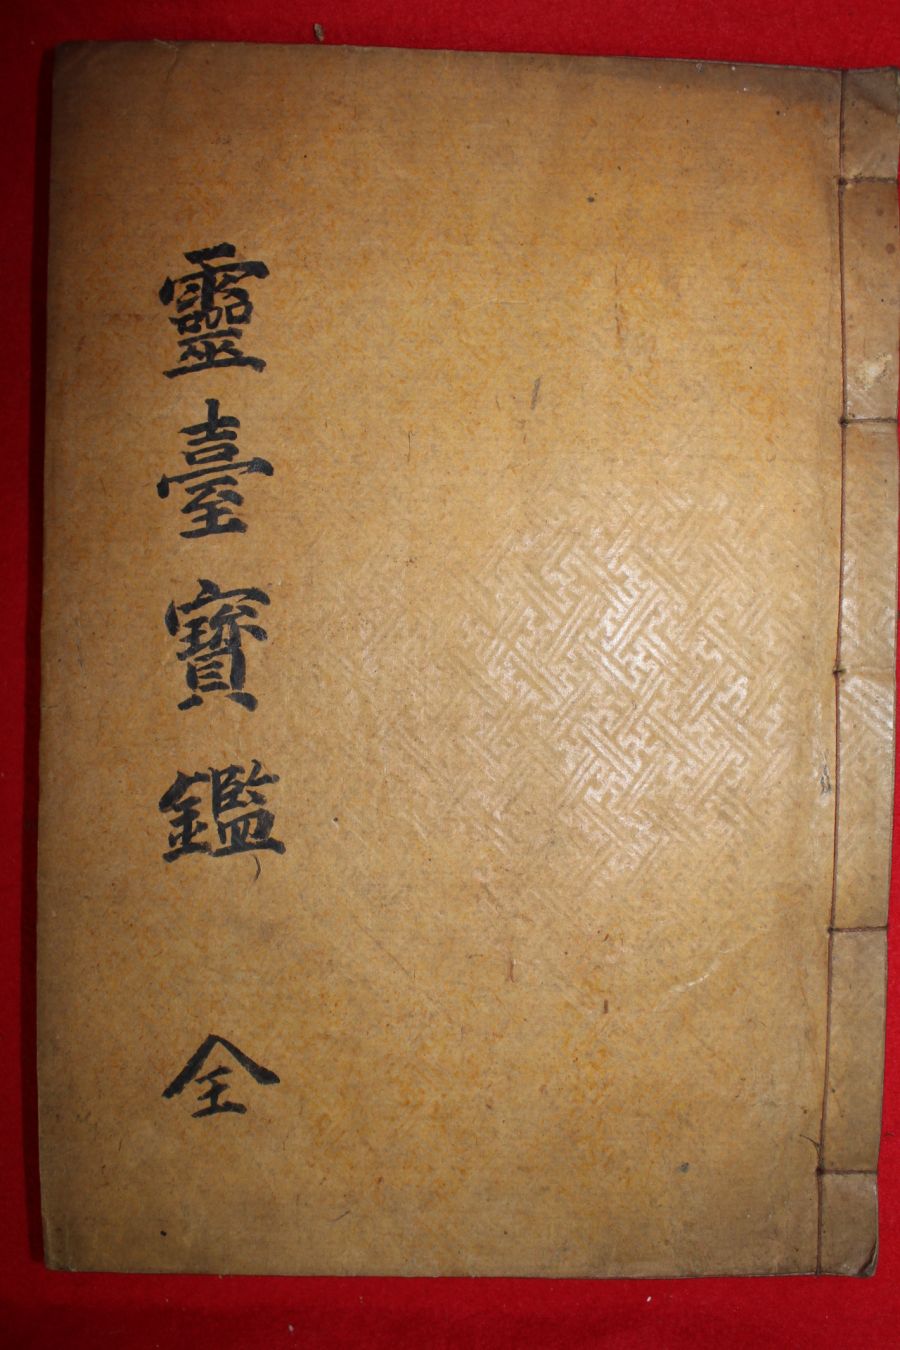 靈臺寶鑑 全